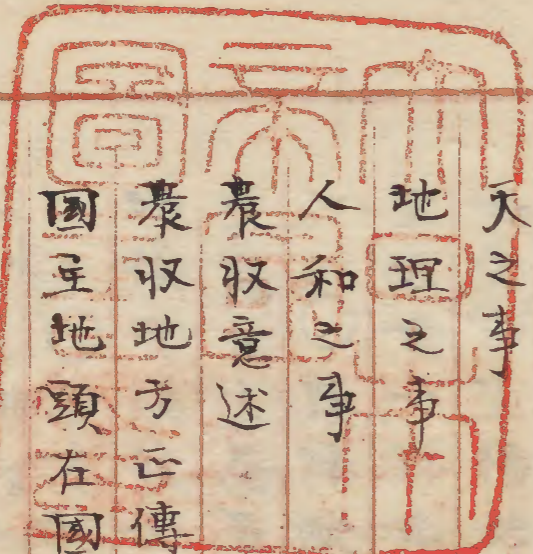 天之事
地理之事
人和之事
農収意述
農収地方正傳
國主地頭在國